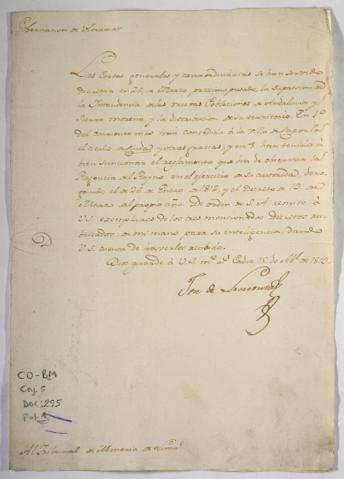 Gobernacion de Ultramar
Las Cortes generales y extraordinarias se han servido
decretar en 26 de Marzo proximo pasado, la supresion de
la Intendencia de las nuevas Poblaciones de Andalucia y
Sierra morena, y la de su territorio. En 1º
del corriente mes han concedido à la Villa de
el titulo de Ciudad y otras gracias; y en 8 han tenido á
bien sancionar el reglamento que ha de observar la
Regencia del Reyno en el ejercicio de su autoridad, dero-
gando el de 26 de Enero de 1812, y el decreto de 13 de
Marzo del propio año. De orden de S. A. remito à
V.S. exemplares de los tres mencionados decretos
de mi mano para su inteligencia, dando-
V.S. cuenta de haverlos recibido.
Dios guarde à V.S. mˢ aˢ Cadiz 15 de Abˡ de 1813
José de Limonta
CO-BM
Caj. 5
Doc. 295
Fol. 1
Al Tribunal de Mineria de Lima